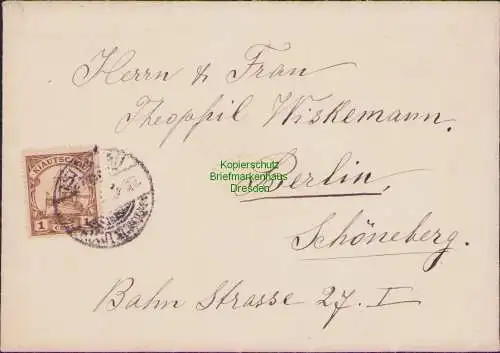 Herrn & Frau
Theophil Wiskemann.
Berlin,
Schöneberg.
Bahn Strasse 27. I
KIAUTSCHOU
1 1
Kopierschutz
Briefmarkenhaus
Dresden